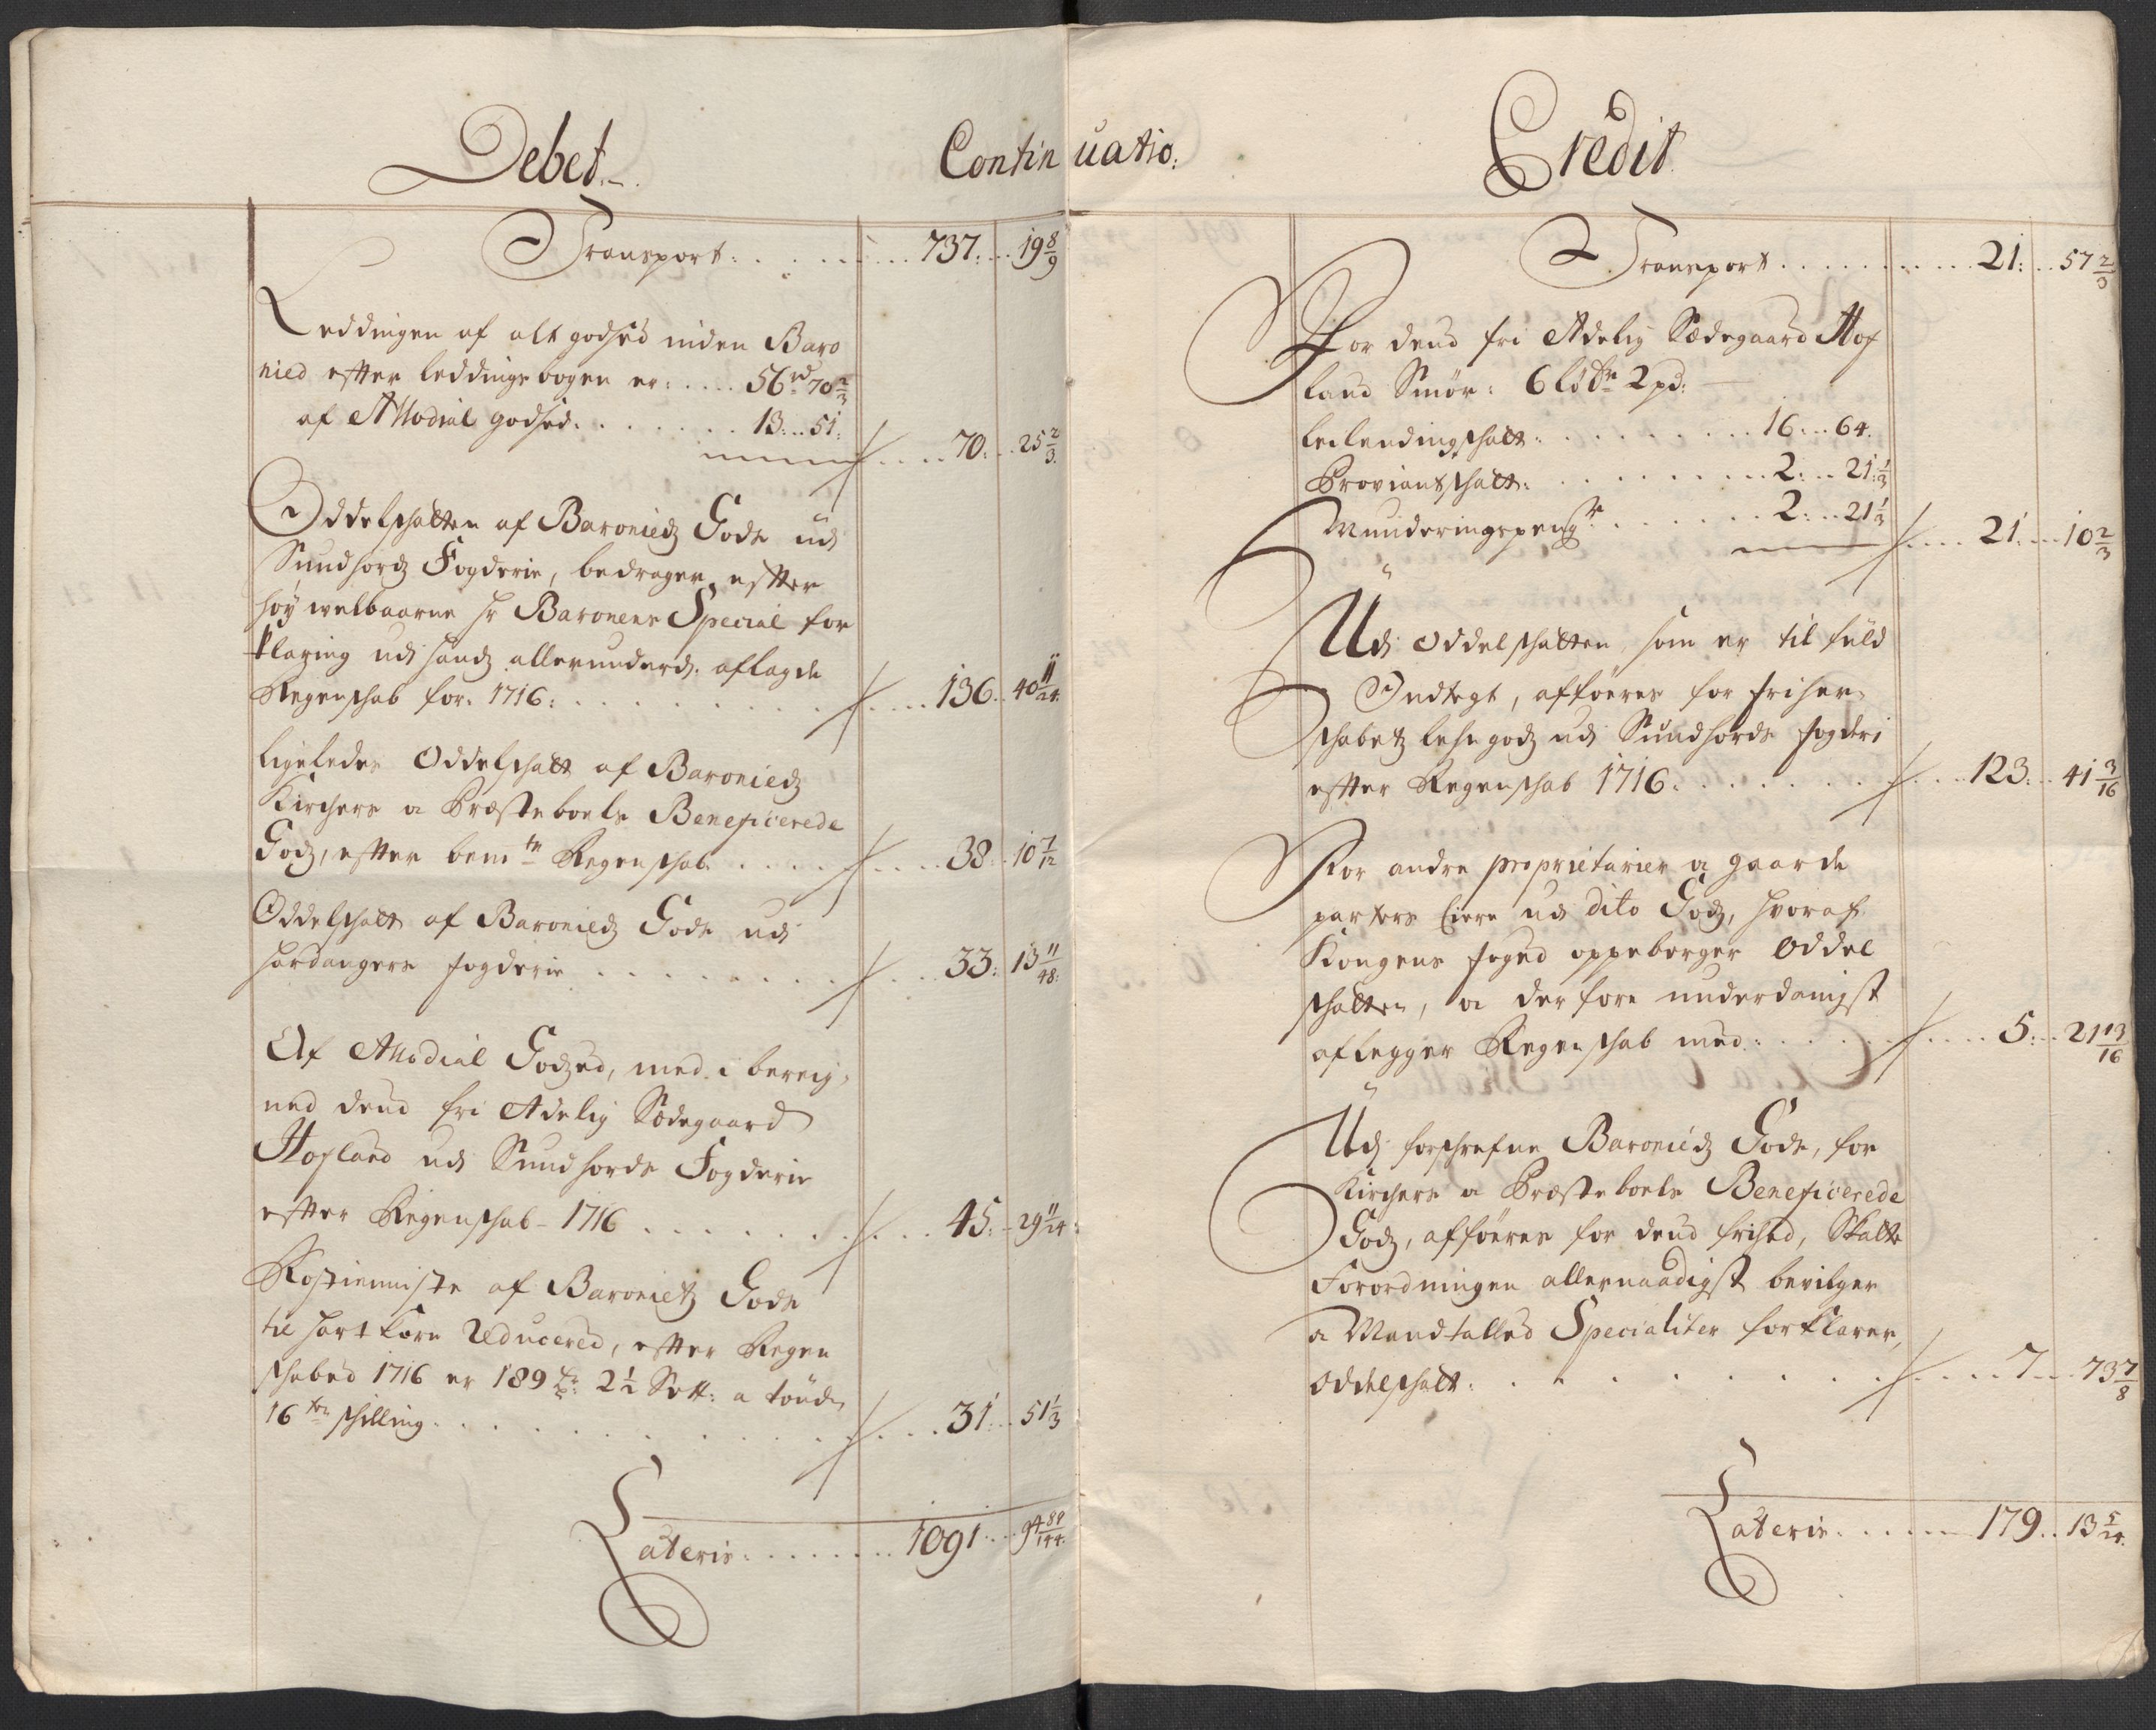 Debet
Continuatio:
Transport: 737: 19 8/9
Leddingen af alt godsed inden Baro
nied efter leddings bogen er: 56 rd 70 2/3
af Allodial godsed 13: 51:
70: 25 2/3
Oddelschatten af Baroniedz Gods udi
Sundhordz Fogderie, bedrager efter
høy welbaarne Hr Baronens Special for
klaring udi hands allerunderd: aflagde
Regenschab for: 1716: 136: 40 11/24
ligeledes Oddelschatt af Baroniedz
Kirchers a Præsteboels Beneficerede
Godz, efter bemte Regenschab 38: 10 7/12
Oddelschatt af Baroniedz Gods udi
Hardangers fogderie 33: 13 11/48:
Af Allodial Godzed, med i bereig,
ned dend fri Adelig Sædegaard
Hofland udi Sundhords Fogderie
efter Regenschab 1716 45: 29 11/24:
Rostienniste af Baronietz Gods
til hartkorn Reducered, efter Regen
schabed 1716 er 189 2 1/2 Sett: a tønde
16 ten schilling 31: 51 1/3
Lateris: 1091: 94 89/144:
Credit
Transport 21: 57 2/3
For dend fri Adelig Sædegaard Hof
land Smør: 6 2 pd:
Leilendingschatt: 16: 64.
Proviantschatt: 2: 21 1/3
Munderingspenge 2: 21 1/3
21: 10 2/3
Udi Oddelschatten, som er til fuld
Indtegt, afføeres for friher,
schabetz lehn godz udi Sundhords fogderi
efter Regenschab 1716: 123: 41 3/16
For andre proprietarier a gaarde
parters Eiere udi dito Godz, hvoraf
Kongens foged oppeberger Oddel
schatten, a derfore underdanigst
aflegger Regenschab med: 5: 21 13/16
Udi forschrefne Baroniedz Gods, for
Kirchers a Præsteboels Beneficerede
Godz, afføeres for dend frihed, Skatte
Forordningen allernaadigst bevilger
a Mandtalled Specialiter forklarer,
Oddelschatt: 7: 73 7/8
Lateris: 179: 13 5/24.